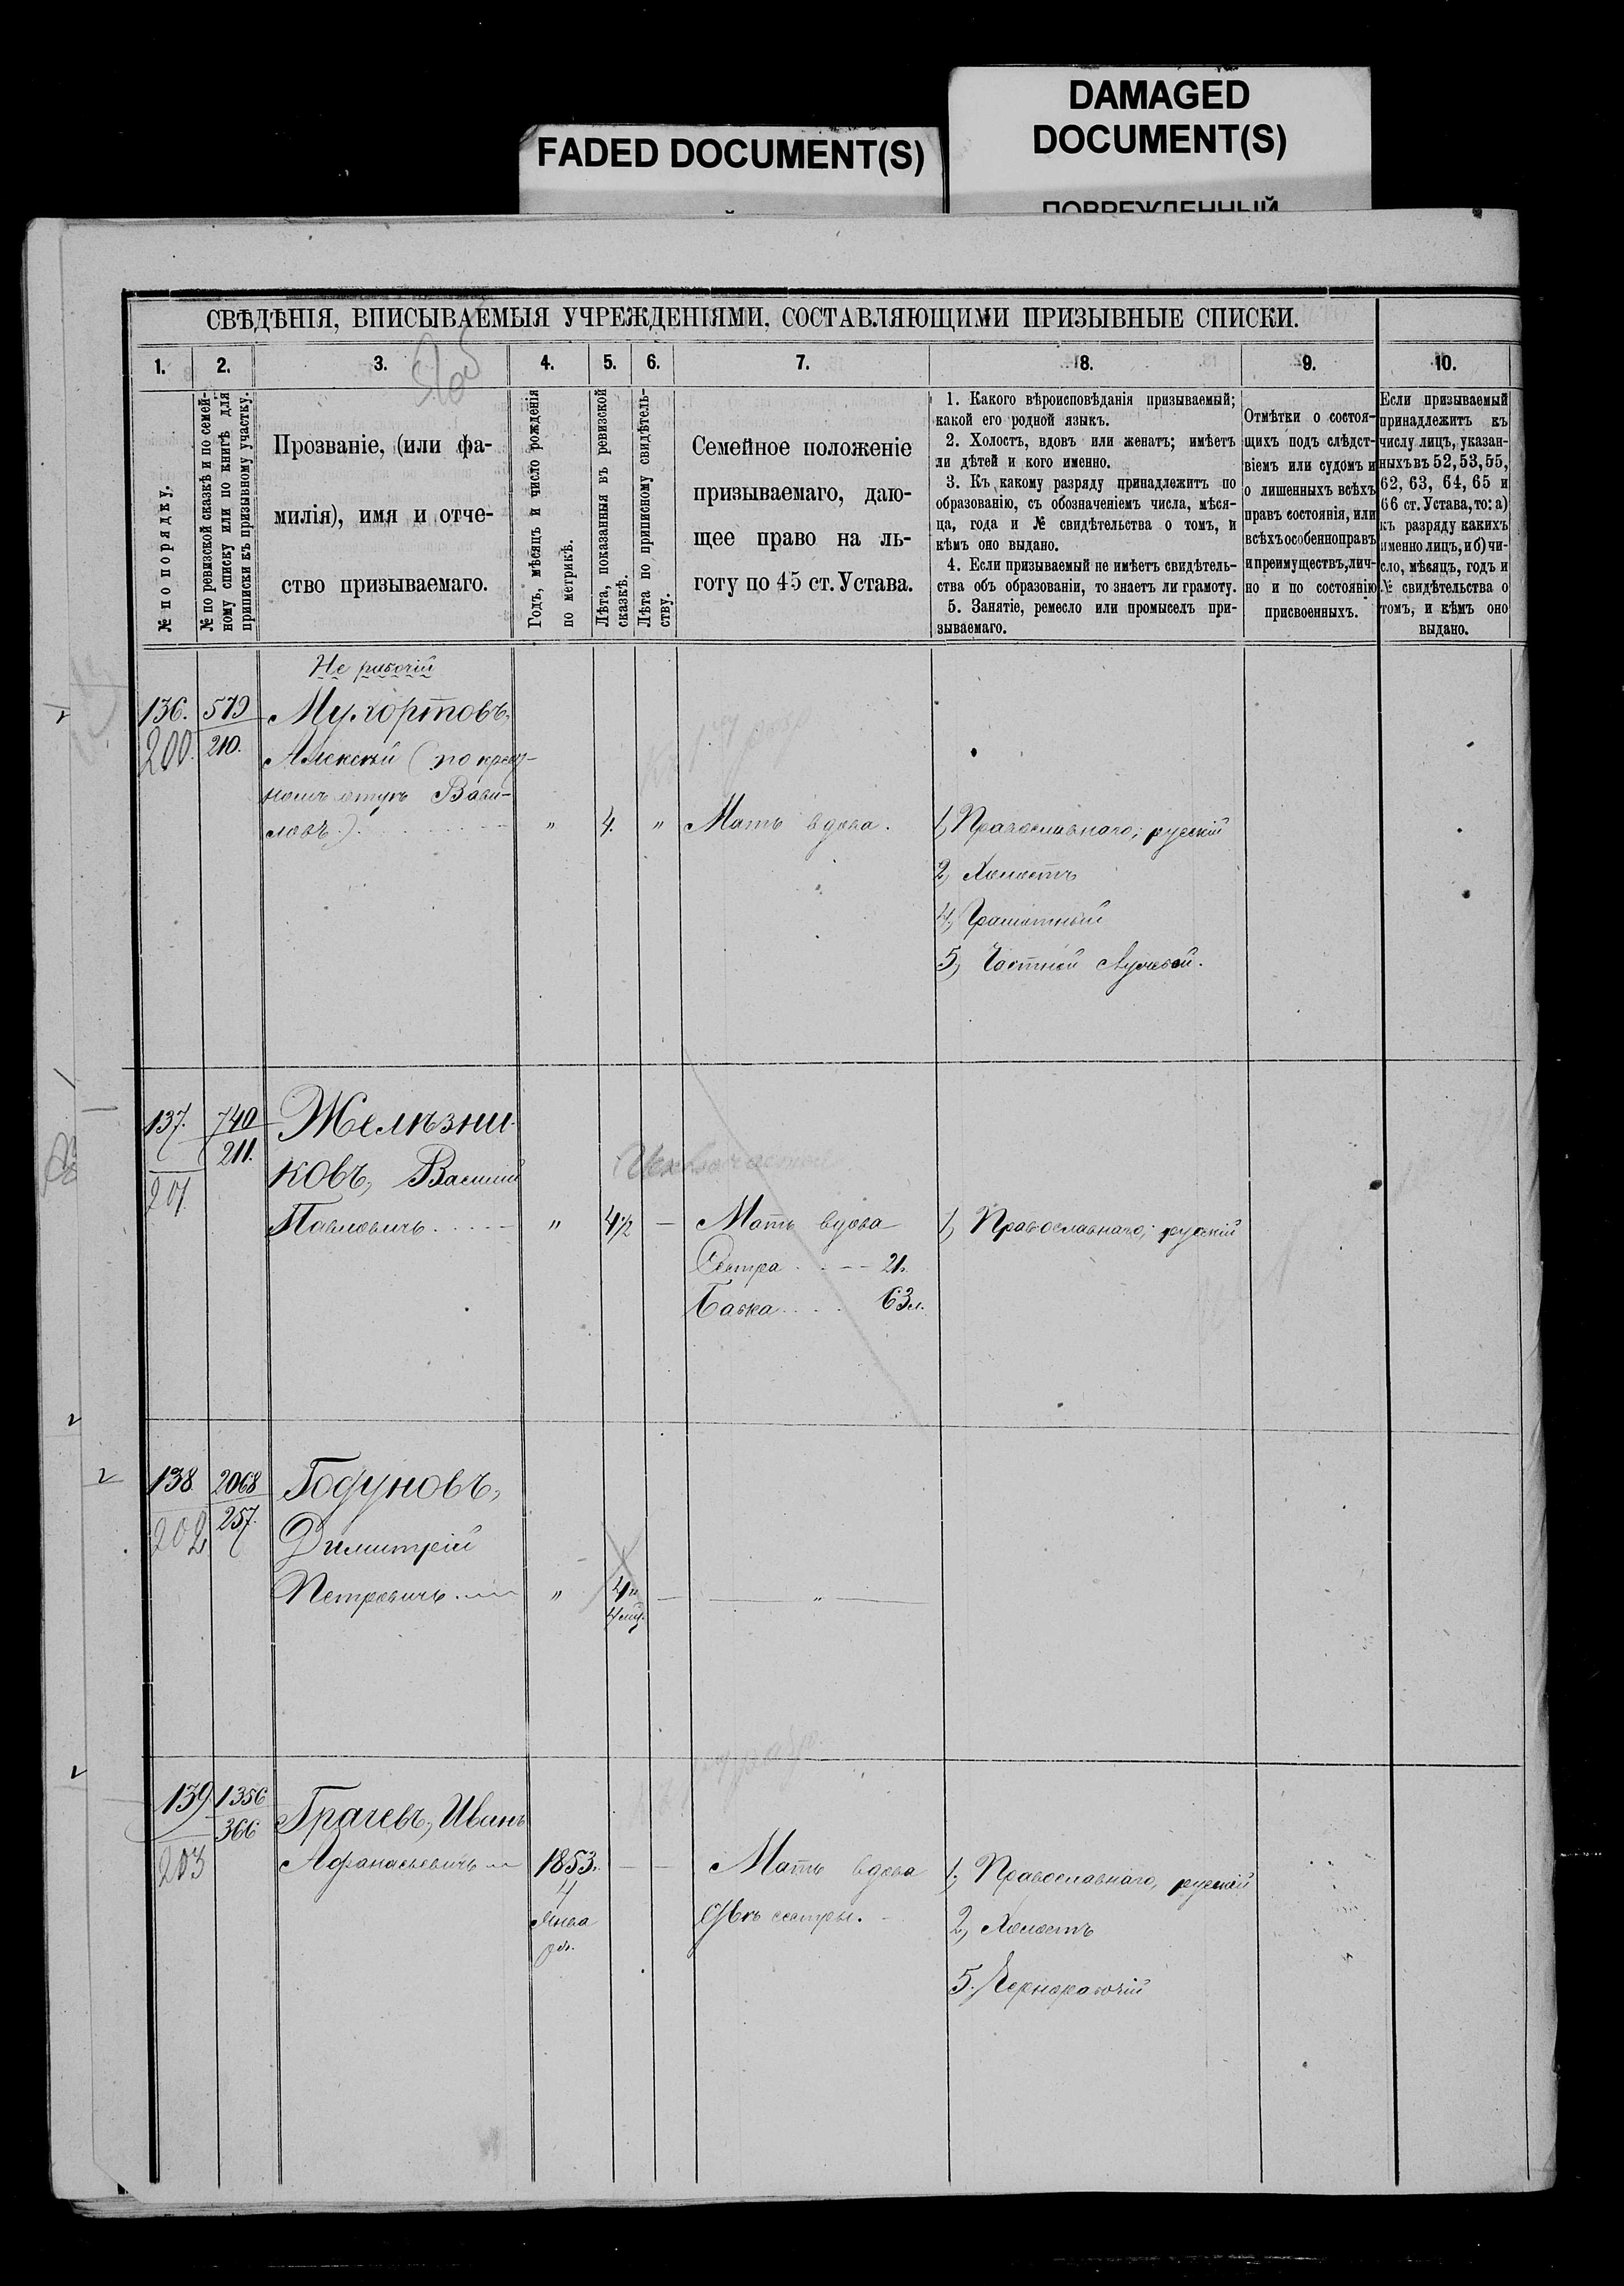 FADED DOCUMENT(S)
DAMAGED
DOCUMENT(S)
ПОВРЕЖДЕННЫЙ
СВѢДѢНІЯ, ВПИСЫВАЕМЫЯ УЧРЕЖДЕНІЯМИ, СОСТАВЛЯЮЩИМИ ПРИЗЫВНЫЕ СПИСКИ.
1.
2.
3.
4.
5.
6.
7.
8.
9.
10.
№ по порядку.
№ по ревизской сказкѣ и по семей-
ному списку или по книгѣ для
приписки къ призывному участку.
Прозваніе, (или фа-
милія), имя и отче-
ство призываемаго.
Годъ, мѣсяцъ и число рожденія
по метрикѣ.
Лѣта, показанныя въ ревизской
сказкѣ.
Лѣта по приписному свидѣтель-
ству.
Семейное положеніе
призываемаго, даю-
щее право на ль-
готу по 45 ст. Устава.
1. Какого вѣроисповѣданія призываемый;
какой его родной языкъ.
2. Холостъ, вдовъ или женатъ; имѣетъ
ли дѣтей и кого именно.
3. Къ какому разряду принадлежитъ по
образованію, съ обозначеніемъ числа, мѣся-
ца, года и № свидѣтельства о томъ, и
кѣмъ оно выдано.
4. Если призываемый не имѣетъ свидѣтель-
ства объ образованіи, то знаетъ ли грамоту.
5. Занятіе, ремесло или промыселъ при-
зываемаго.
Отмѣтки о состоя-
щихъ подъ слѣдст-
віемъ или судомъ и
о лишенныхъ всѣхъ
правъ состоянія, или
всѣхъ особенно правъ
и преимуществъ, лич-
но и по состоянію
присвоенныхъ.
Если призываемый
принадлежитъ къ
числу лицъ, указан-
ныхъ въ 52, 53, 55,
62, 63, 64, 65 и
66 ст. Устава, то: а)
къ разряду какихъ
именно лицъ, и б) чи-
сло, мѣсяцъ, годъ и
№ свидѣтельства о
томъ, и кѣмъ оно
выдано.
Не рабочій
136. 579 Мухортовъ,
200. 210.
Алексѣй (по крест-
номъ отцѣ Вави-
ловъ) " 4. " Мать вдова. 1, Православнаго; русскій
2, Холостъ
4, Грамотный
5, Частной службой.
137. 740 Желѣзни-
211.
201
ковъ, Василий
Павловичъ " 4½ — Мать вдова 1, Православнаго; русскій
Сестра 21.
Бабка 63 л.
138. 2068 Годуновъ,
202 257.
Димитрій
Петровичъ " 4 — "
139 1356 Грачевъ, Иванъ
366
203 Афанасьевичъ 1853. — — Мать вдова 1, Православнаго, русскій
4
Янва
ря.
Двѣ сестры.
2, Холостъ
5, Чернорабочій